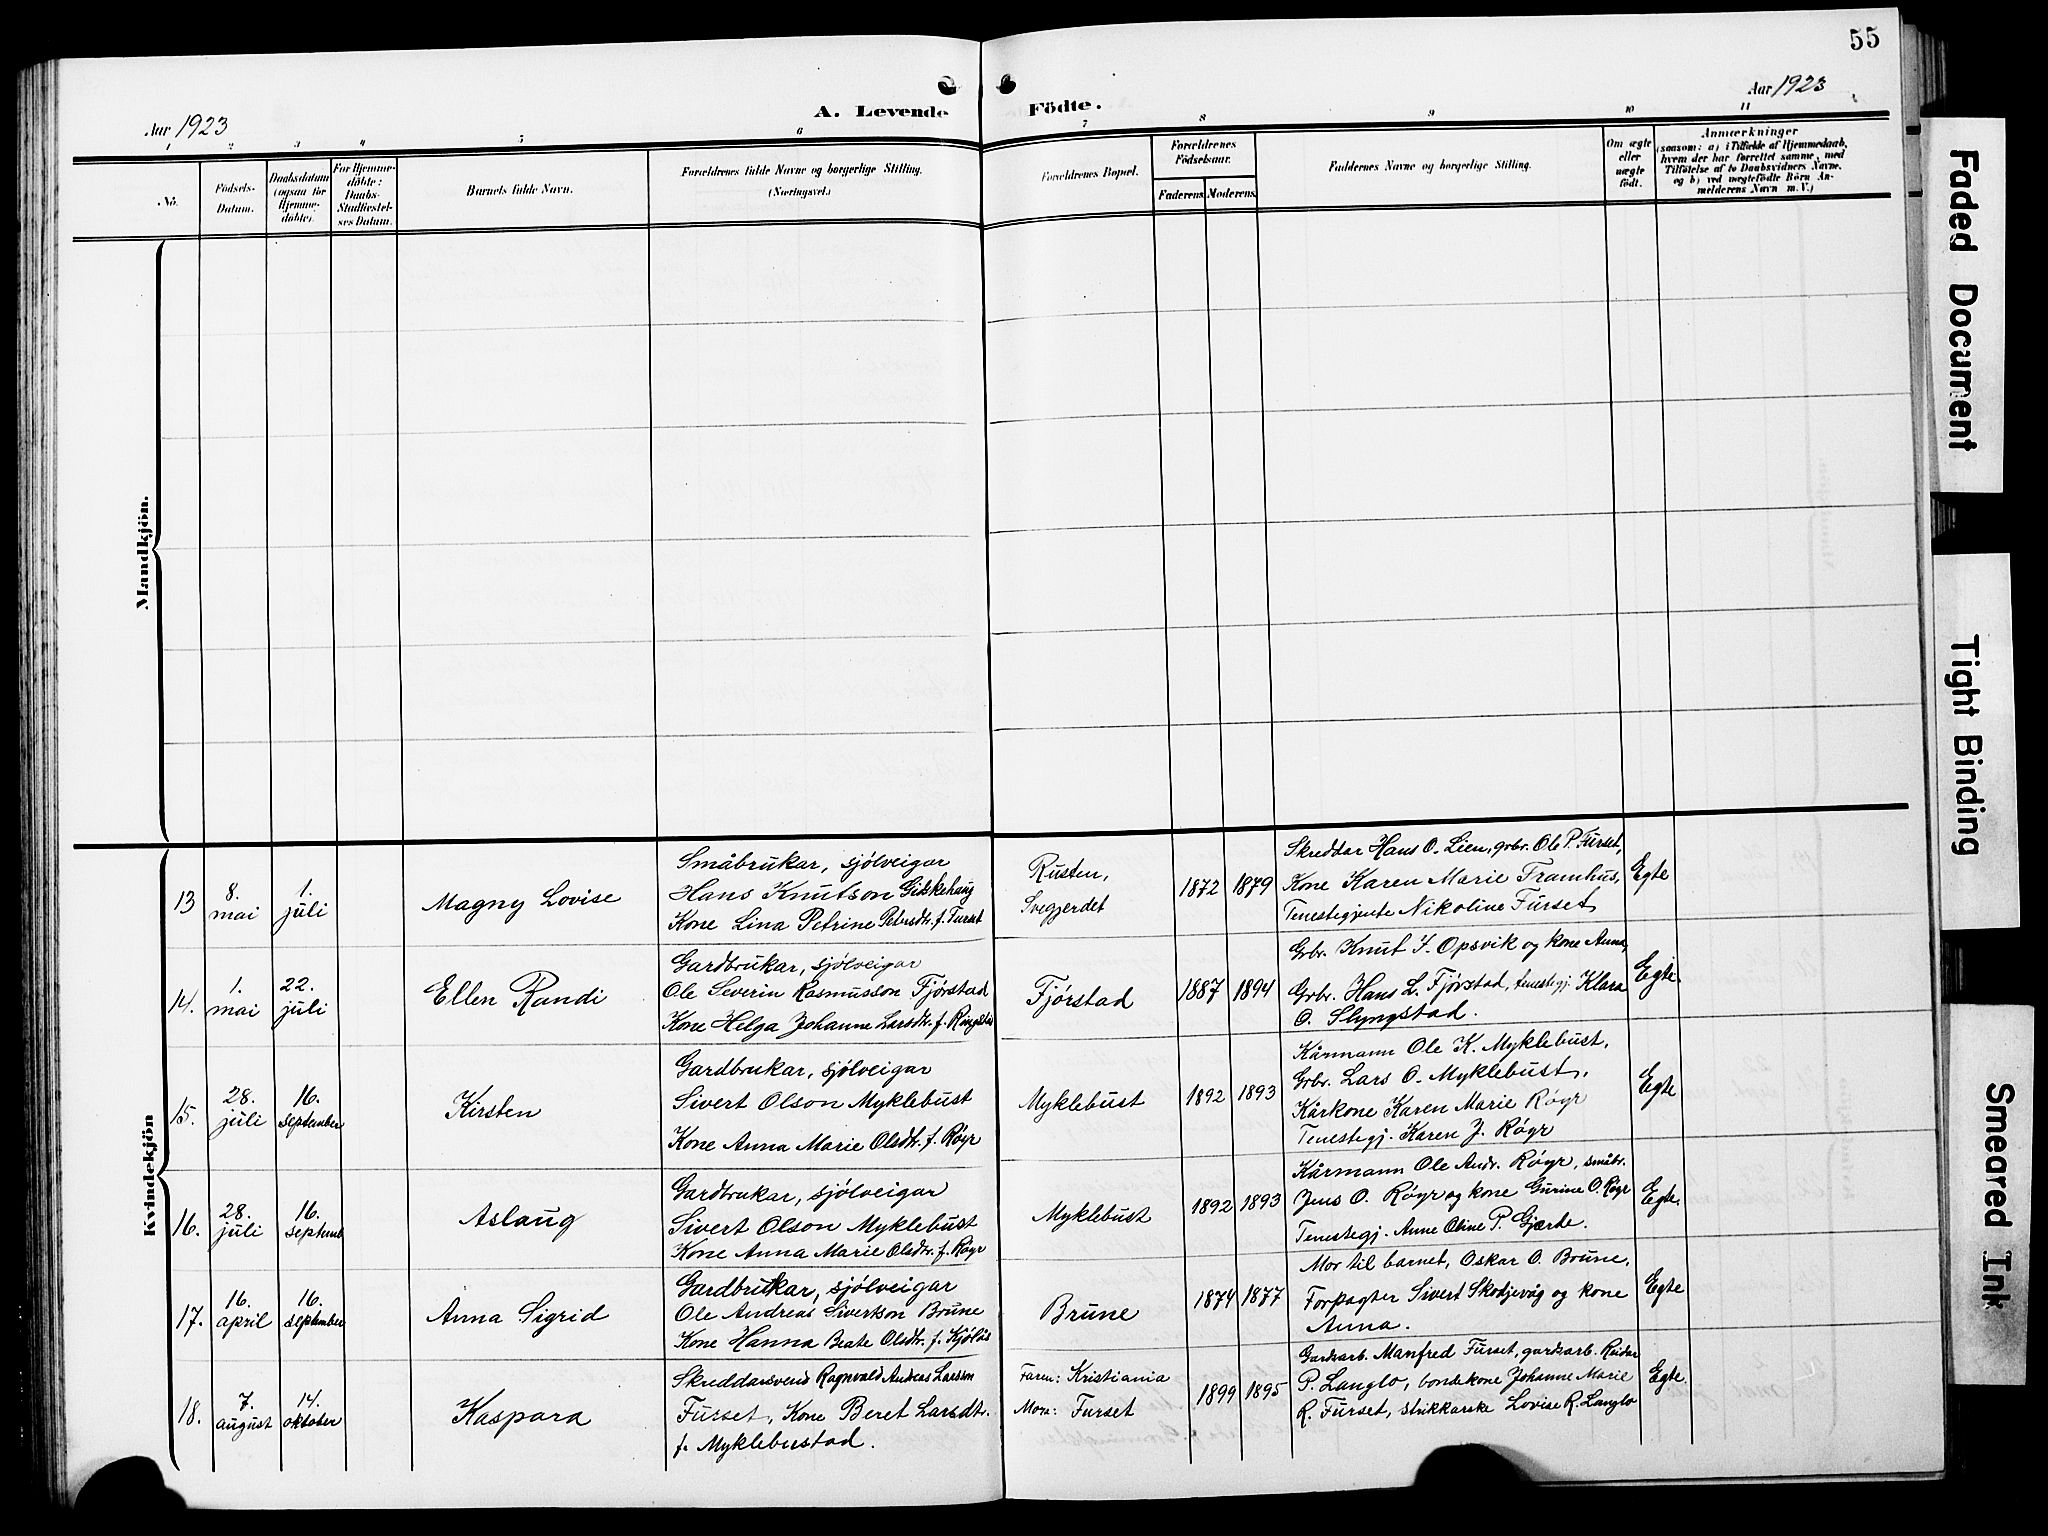 55
Aar 1923
A. Levende Födte.
Aar 1923
1 2 3 4 5 6 7 8 9 10 11
No.
Födsels-
Datum.
Daabsdatum
(ogsaa for
Hjemme-
döbte).
For Hjemme-
döbte:
Daabs-
Stadfæstel-
ses Datum.
Barnets fulde Navn.
Forældrenes fulde Navne og borgerlige Stilling.
(Næringsvei.)
Forældrenes Bopæl.
Forældrenes
Födselsaar.
Faderens. Moderens.
Faddernes Navne og borgerlige Stilling.
Om ægte
eller
uægte
födt.
Anmærkninger
(saasom: a) i Tilfælde af Hjemmedaab,
hvem der har forrettet samme, med
Tilföielse af to Daabsvidners Navne,
og b) ved uægtefödte Börn An-
melderens Navn m. V.)
Mandkjön.
Kvindekjön
13
8.
mai
1.
juli
Magny Lovise
Småbrukar, sjölveigar
Hans Knutson Giskehaug
Kone Lina Petrine Petersdtr. f. Furset
Rusten,
Svegjerdet
1872 1879
Skreddar Hans O. Lien, grbr. Ole P. Furset,
Kone Karen Marie Framhus,
Tenestegjente Nikoline Furset
Egte
14.
1.
mai
22.
juli
Ellen Randi
Gardbrukar, sjölveigar
Ole Severin Rasmusson Fjörstad
Kone Helga Johanne Larsdtr. f. Ringstad
Fjörstad
1887 1894
Grbr. Knut I. Opsvik og kone Anna,
Grbr. Hans L. Fjörstad, tenestegj. Klara
O. Slyngstad.
Egte.
15.
28.
juli
16.
september
Kirsten
Gardbrukar, sjölveigar
Sivert Olson Myklebust
Kone Anna Marie Olsdtr. f. Röyr
Myklebust
1892 1893
Kårmann Ole K. Myklebust,
Grbr. Lars O. Myklebust,
Kårkone Karen Marie Röyr
Tenestegj. Karen J. Röyr
Egte
16.
28.
juli
16.
septemb
Aslaug
Gardbrukar, sjölveigar
Sivert Olson Myklebust
Kone Anna Marie Olsdtr. f. Röyr
Myklebust
1892 1893
Kårmann Ole Andr. Röyr, småbr.
Jens O. Röyr og kone Gurine O. Röyr
Tenestegj. Anne Oline P. Gjærde.
Egte.
17.
16.
april
16.
september
Anna Sigrid
Gardbrukar, sjölveigar
Ole Andreas Sivertson Brune
Kone Hanna Beate Olsdtr. f. Kjölås
Brune
1874 1877
Mor til barnet, Oskar O. Brune,
Forpagter Sivert Skodjevåg og kone
Anna.
Egte
18.
7.
august
14.
oktober
Kaspara
Skreddarsvend Ragnvald Andreas Larsson
Furset, Kone Beret Larsdtr.
f. Myklebustad.
Faren: Kristiania
Mora: Furset
1899 1895
Gardsarb. Manfred Furset, gardsarb. Reidar
P. Langlo, bondekone Johanne Marie
R. Furset, strikkarske Lovise R. Langlo
Egte
Faded Document
Tight Binding
Smeared Ink